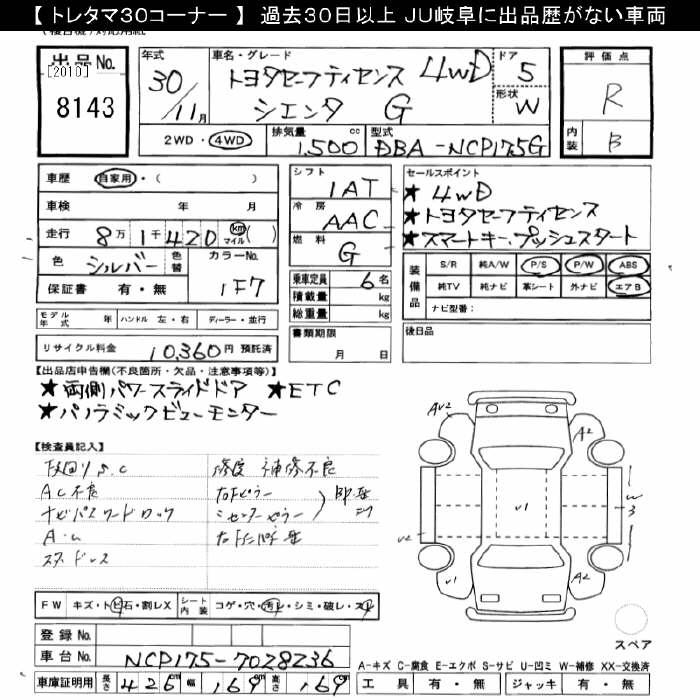 【 トレタマ30コーナー 】 過去30日以上 JU岐阜に出品歴がない車両
出品No. [2010] 8143
年式 30/11月
車名・グレード トヨタセーフティセンス 4WD
シエンタ G
ドア 5
形状 W
2WD・4WD 排気量 1,500 cc 型式 DBA-NCP175G
評価点 R
内装 B
車歴 自家用・( )
車検 年 月
走行 8万1千420 km マイル ( )
色 シルバー 色替 カラーNo. 1F7
保証書 有・無
モデル年式 年 ハンドル 左・右 ディーラー・並行
リサイクル料金 10,360円 預託済
シフト 1AT
冷房 AAC
燃料 G
乗車定員 6名
積載量 kg
総重量 kg
書類期限 月 日
セールスポイント
★ 4WD
★トヨタセーフティセンス
★スマートキー、プッシュスタート
装備品 S/R 純A/W P/S P/W ABS
純TV 純ナビ 革シート 外ナビ エアB
ナビ型番:
後日品
【出品店申告欄(不良箇所・欠品・注意事項等)】
★両側パワースライドドア ★ETC
★パノラミックビューモニター
【検査員記入】
AC不良
ナビパスワードロック
修復 補修不良
右Fピラー
シセンターピラー
AU2
A2
U2
U1
W3
U1
A2
FW キズ・トビ石・割レX シート内装 コゲ・穴・汚レ・シミ・破レ・スレ
登録No.
車台No. NCP175-7028236
車庫証明用 長さ 426 幅 169 高さ 169
スペア
A-キズ C-腐食 E-エクボ S-サビ U-凹ミ W-補修 XX-交換済
工具 有・無 ジャッキ 有・無